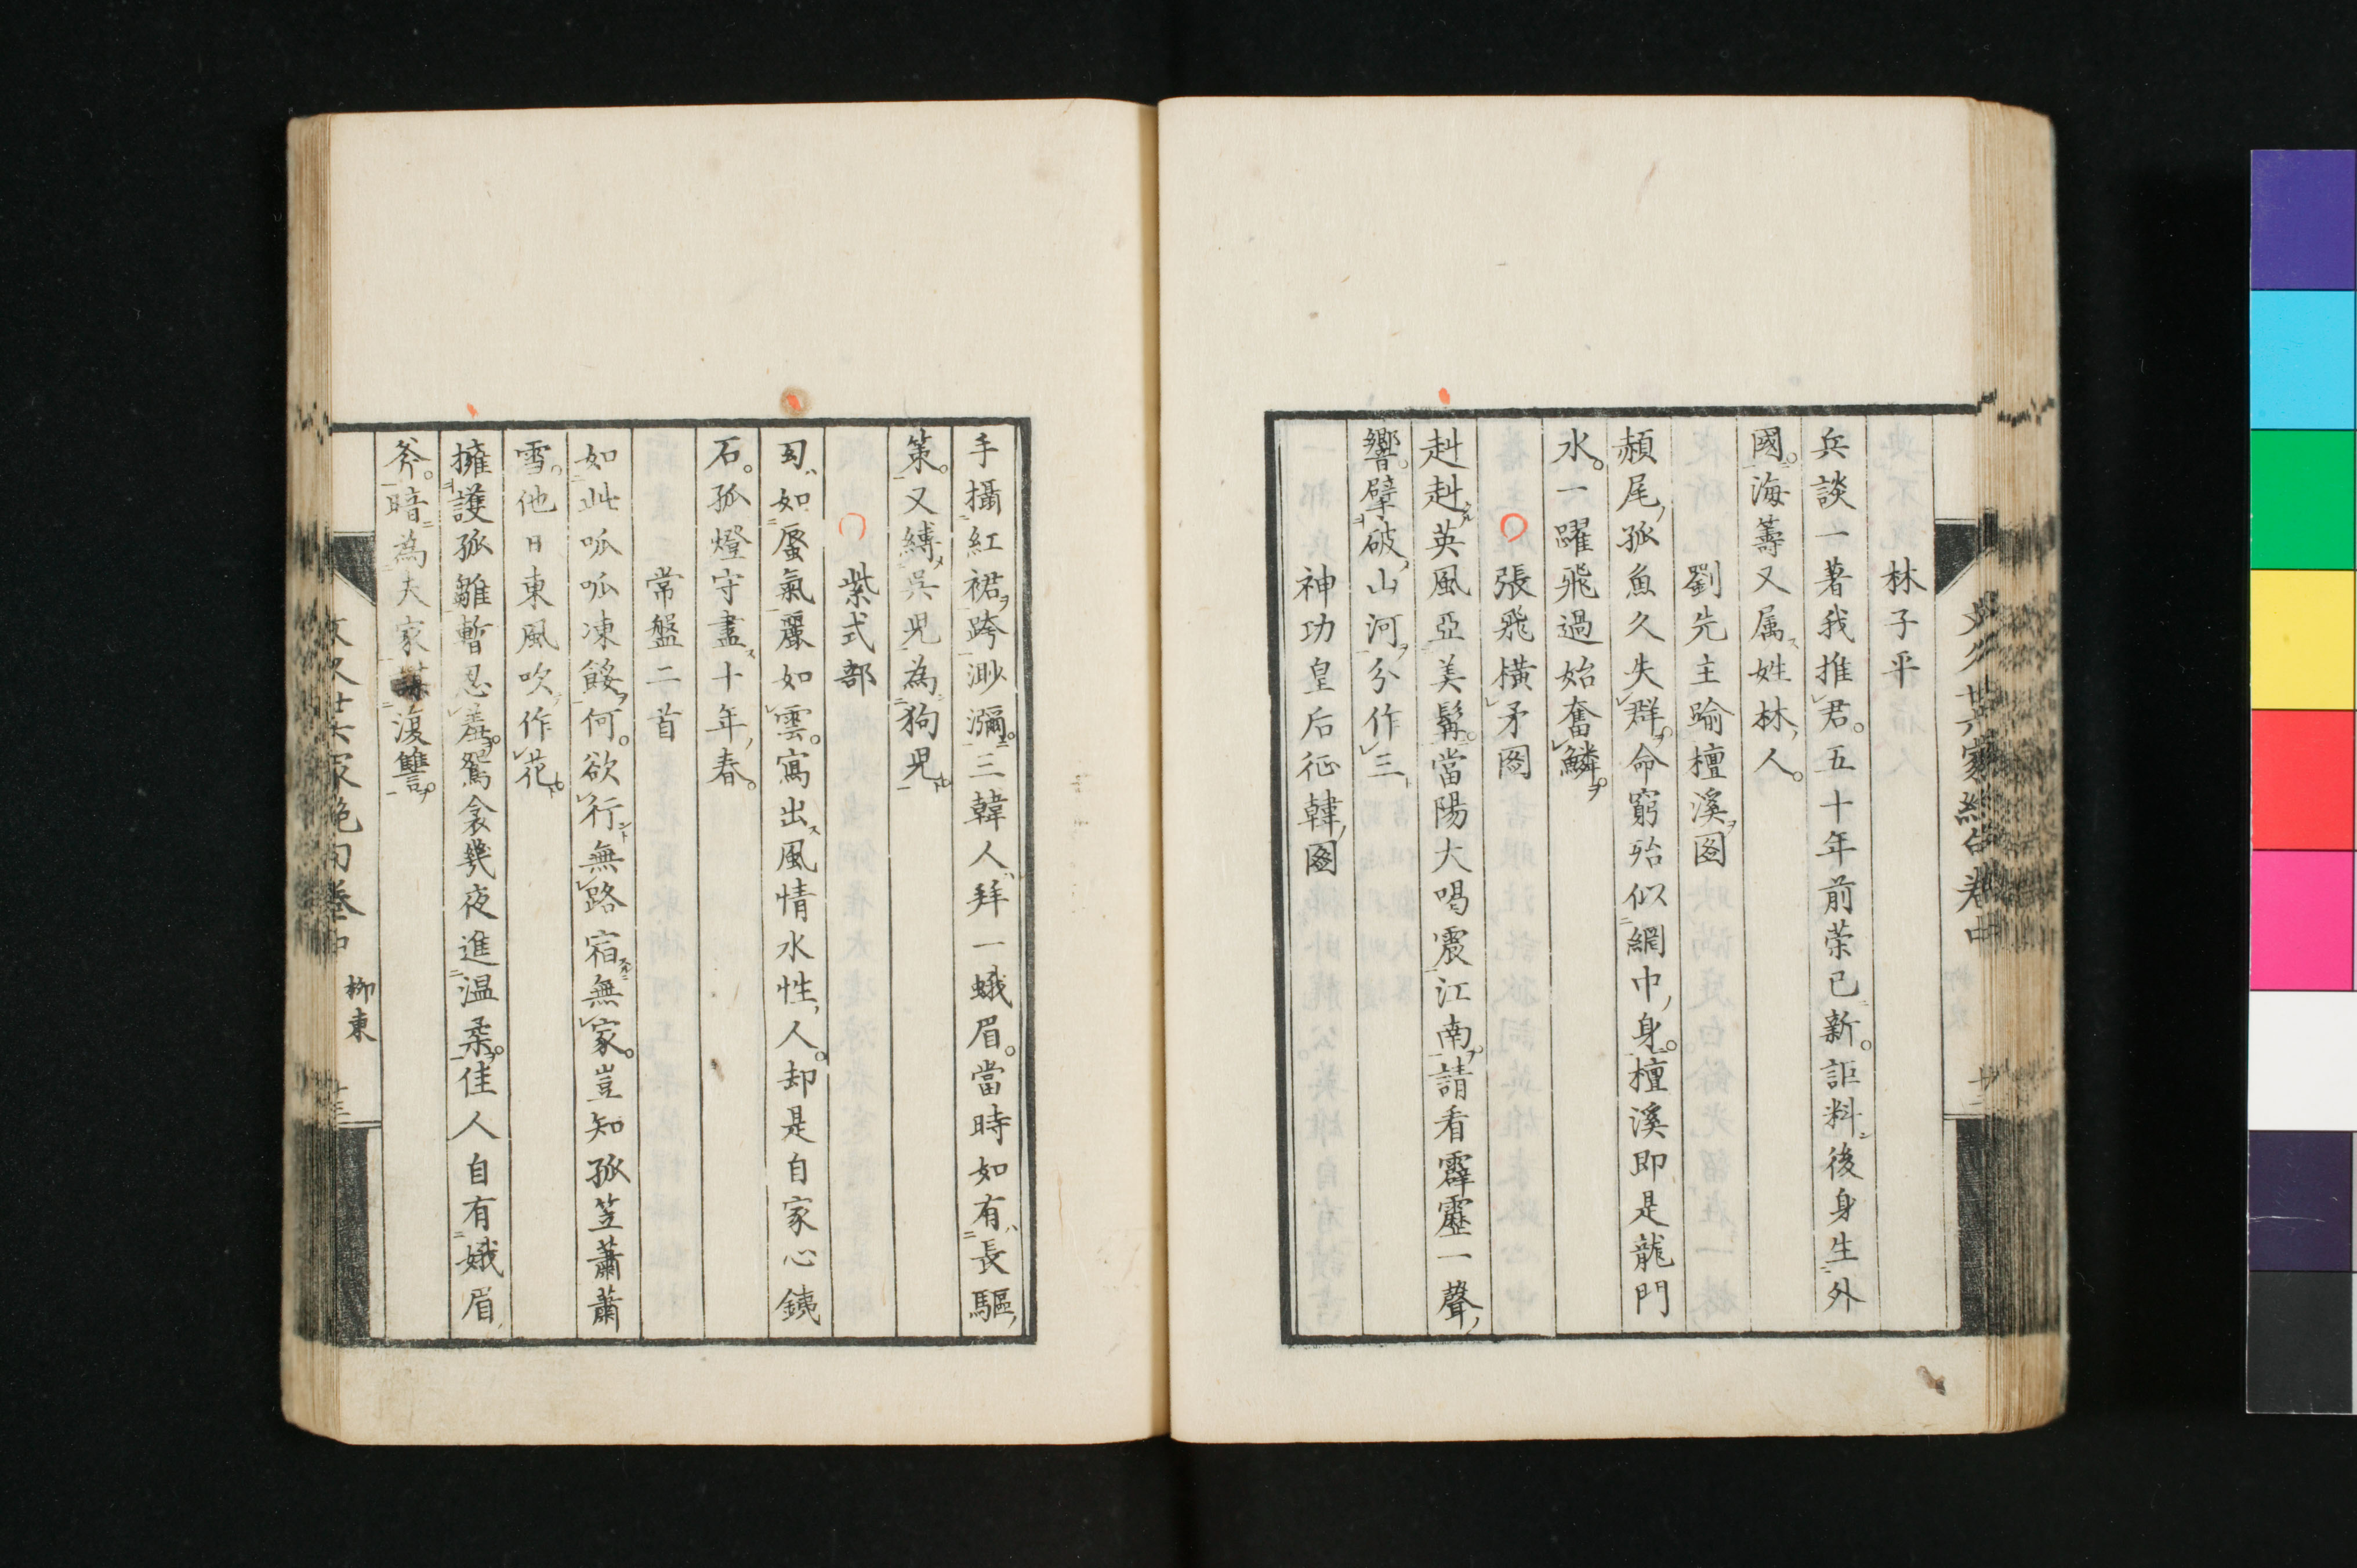 林子平
兵談一著我推君。五十年前榮已新。詎料後身生外
國。海籌又属姓林人。
劉先主踰檀溪圖
赬尾孤魚久失群。命窮殆似網中身。檀溪即是龍門
水。一躍飛過始奮鱗。
張飛橫矛圖
赳赳英風亞美髯。當陽大喝震江南。請看霹靂一聲
響。擘破山河分作三
神功皇后征韓圖
手攝紅裙跨渺瀰。三韓人拜一蛾眉。當時如有長驅
策。又縛吳兒為狗兒
紫式部
如蜃氣麗如雲。寫出風情水性人。却是自家心銕
石。孤燈守盡十年春。
常盤二首
如此呱呱凍餒何。欲行無路宿無家。豈知孤笠蕭蕭
雪。他日東風吹作花
擁護孤雛暫忍羞。鴛衾幾夜進温柔。佳人自有娥眉
斧。暗為夫家謀復讐。
柳東